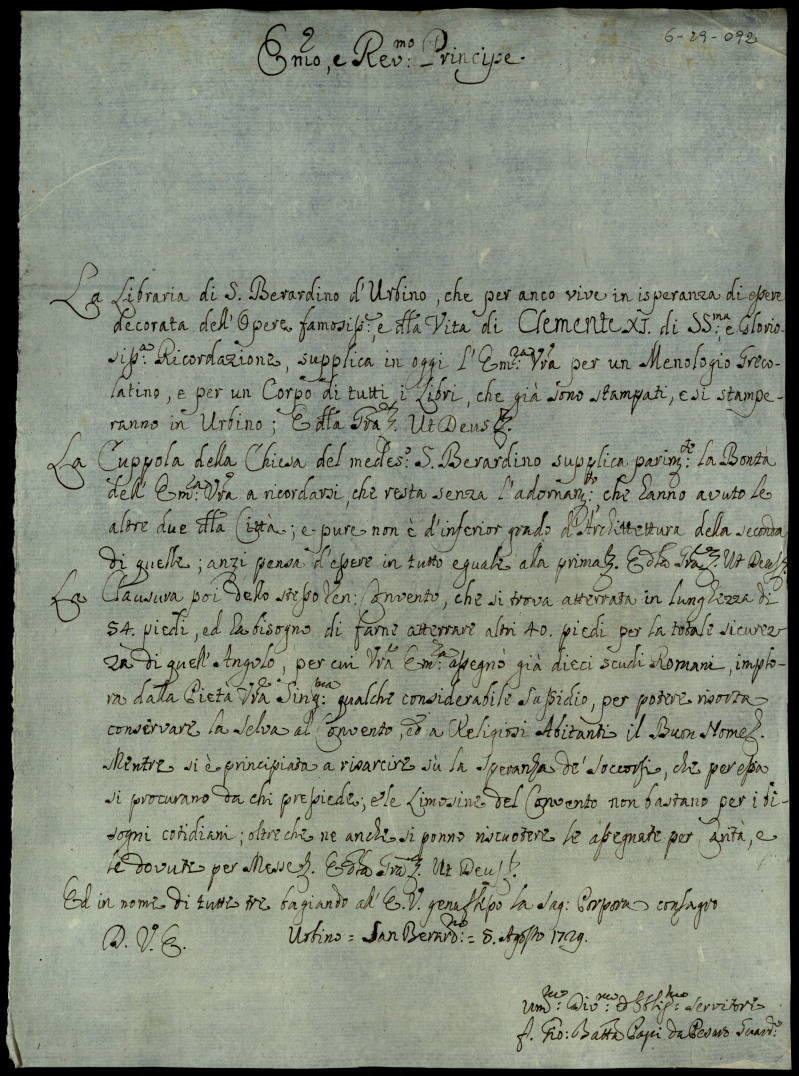 6-29-092
Em̃o, e Rev:mo Principe.
La Libraria di S. Berardino d'Urbino, che per anco vive in isperanza di essere
decorata dell'Opere famosiss:e, e dlla Vita di Clemente XI. di SS:ma, e Glorio-
siss:a Ricordazione, supplica in oggi l'Em:za Vrã per un Menologio Greco-
latino, e per un Corpo di tutti i Libri, che già sono stampati, e si stampe-
ranno in Urbino; E dlla Gra
Ut Deus
La Cuppola della Chiesa del medes:o S. Berardino supplica parim:te la Bontà
dell'Em:za Vrã a ricordarsi, che resta senza l'adornam:to, che hanno avuto le
altre due dlla Città; e pure non è d'inferior grado d'Architettura della seconda
di quelle; anzi pensa d'essere in tutto eguale alla prima. E dlla Gra Ut Deus
La Clausura poi dello stesso Ven: Convento, che si trova atterrata in lunghezza di
54. piedi, ed ha bisogno di farne atterrare altri 40. piedi per la totale sicurez-
za di quell'Angulo, per cui Vrã Em:za assegnò già dieci scudi Romani, implo-
ra dalla Pietà Vrã qualche considerabile Sussidio, per potere risorta
conservare la Selva al Convento, ed a Religiosi Abitanti il Buon Nome.
Mentre si è principiata a risarcire sù la Speranza de' Soccorsi, che per essa
si procurano da chi pressiede; e le Limosine del Convento non bastano per i bi-
sogni cotidiani; oltre che ne anche si ponno riscuotere le assegnate per Carità, e
le dovute per Messe. E dlla Gra Ut Deus
Ed in nome di tutte tre bagiando all'E.V. genuflesso la Sag: Porpora consagro
D. V. E. Urbino = San Berard:no = 8. Agosto 1729.
Um:mo Div:mo ed Obblig:mo Servitore
f. Gio: Batta Papi da Pesaro Guard:o